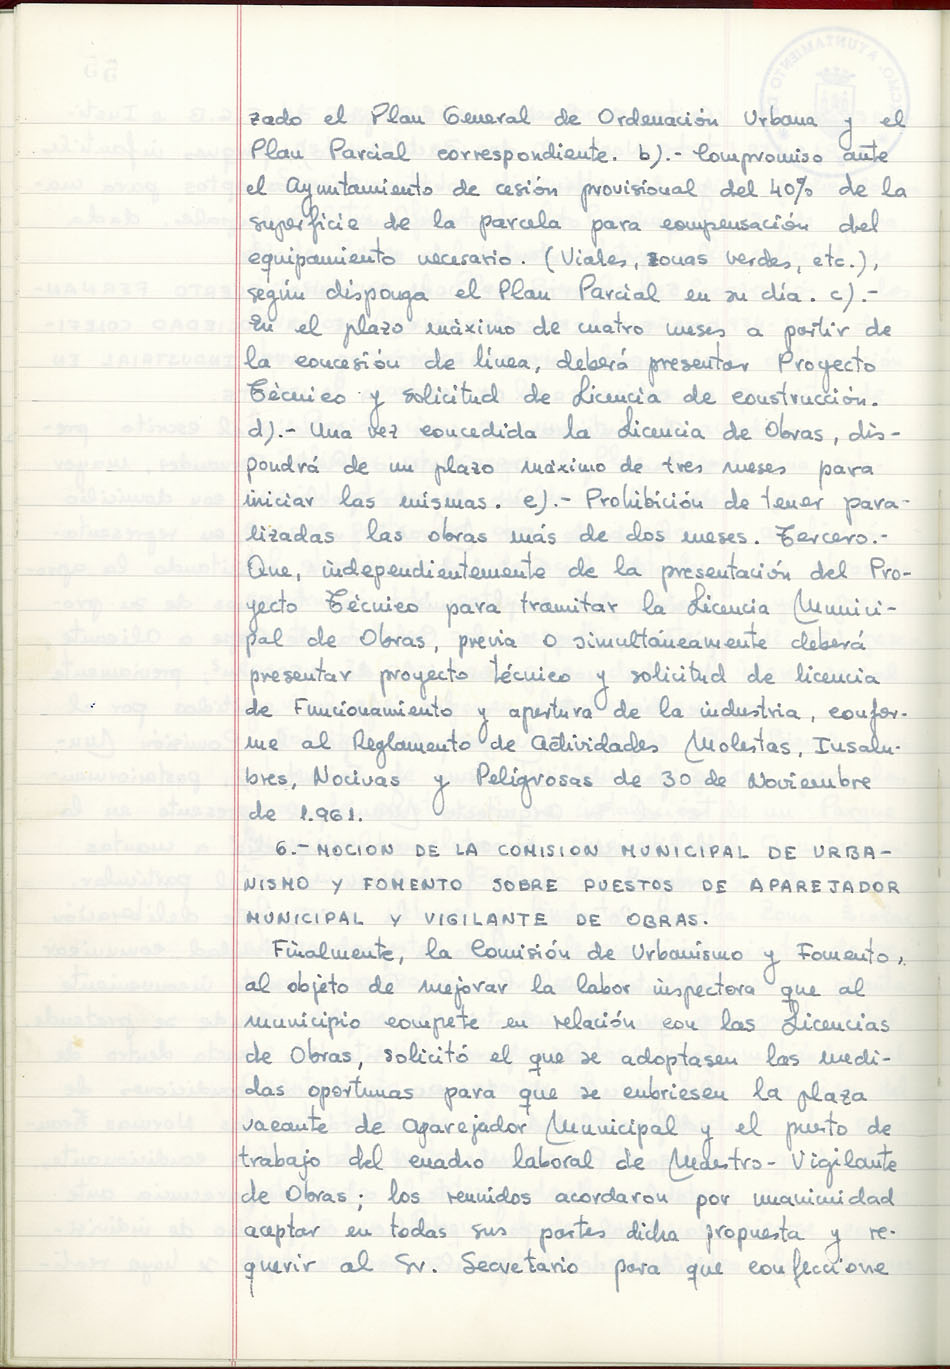 zado el Plan General de Ordenación Urbana y el
Plan Parcial correspondiente. b).- Compromiso ante
el Ayuntamiento de cesión provisional del 40% de la
superficie de la parcela para compensación del
equipamiento necesario. (Viales, zonas verdes, etc.),
según disponga el Plan Parcial en su día. c).-
En el plazo máximo de cuatro meses a partir de
la concesión de línea, deberá presentar Proyecto
Técnico y solicitud de Licencia de construcción.
d).- Una vez concedida la Licencia de Obras, dis-
pondrá de un plazo máximo de tres meses para
iniciar las mismas. e).- Prohibición de tener para-
lizadas las obras más de dos meses. Tercero.-
Que, independientemente de la presentación del Pro-
yecto Técnico para tramitar la Licencia Munici-
pal de Obras, previa o simultáneamente deberá
presentar proyecto técnico y solicitud de licencia
de Funcionamiento y apertura de la industria, confor-
me al Reglamento de Actividades Molestas, Insalu-
bres, Nocivas y Peligrosas de 30 de Noviembre
de 1.961.
6.- MOCION DE LA COMISION MUNICIPAL DE URBA-
NISMO Y FOMENTO SOBRE PUESTOS DE APAREJADOR
MUNICIPAL Y VIGILANTE DE OBRAS.
Finalmente, la Comisión de Urbanismo y Fomento,
al objeto de mejorar la labor inspectora que al
municipio compete en relación con las Licencias
de Obras, solicitó el que se adoptasen las medi-
das oportunas para que se cubriesen la plaza
vacante de Aparejador Municipal y el puesto de
trabajo del cuadro laboral de Maestro-Vigilante
de Obras; los reunidos acordaron por unanimidad
aceptar en todas sus partes dicha propuesta y re-
querir al Sr. Secretario para que confeccione